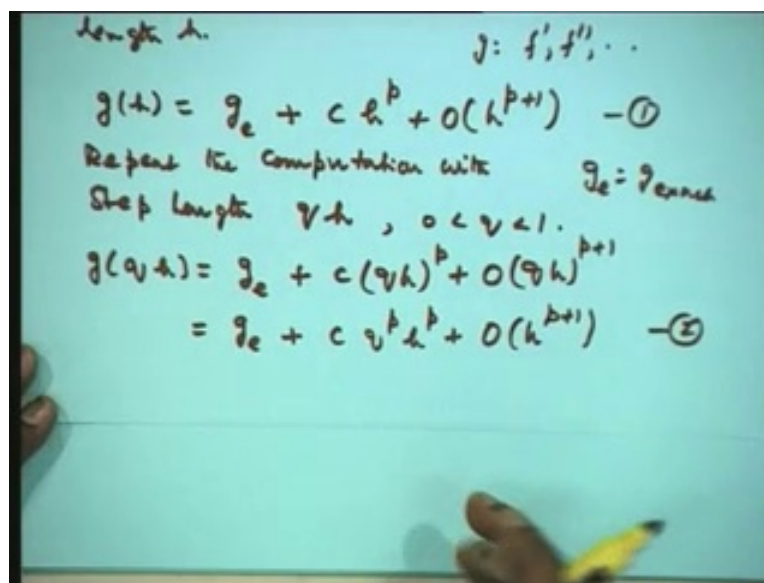 length h.
g: f', f'', ..
g(h) = g_e + c h^p + O(h^{p+1}) - ①
Repeat the computation with
g_e = g_exact
Step length qh, 0 < q < 1.
g(qh) = g_e + c (qh)^p + O(qh)^{p+1}
= g_e + c q^p h^p + O(h^{p+1}) - ②